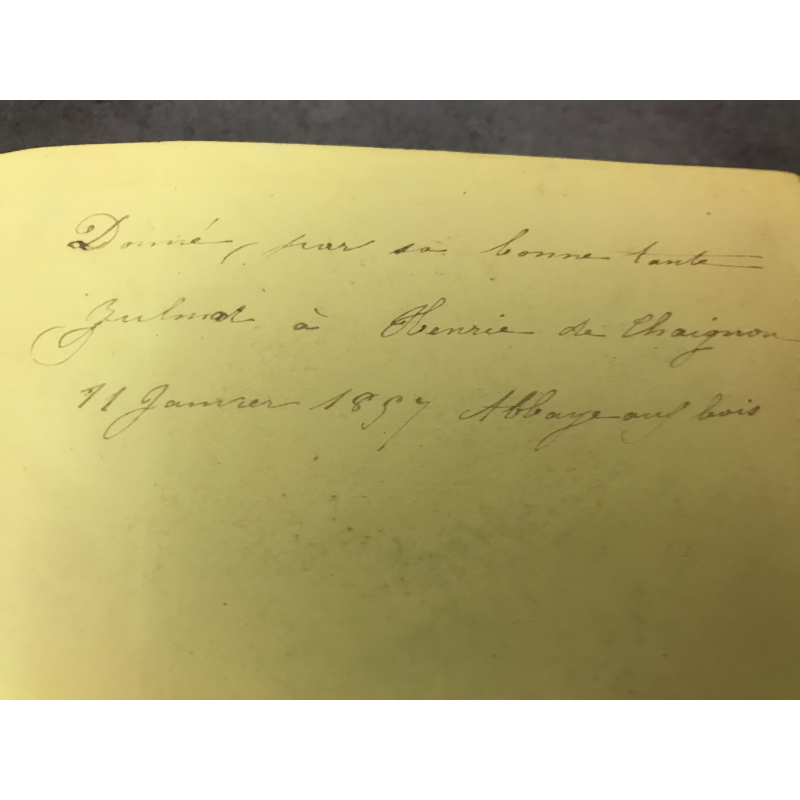 Donné, par sa bonne tante
Zulma à Henrie de Chaignon
11 Janvier 1857 Abbaye aux bois